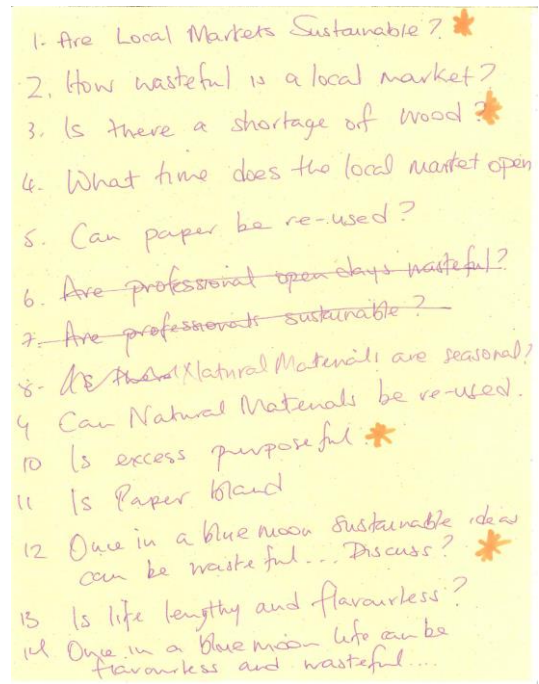 1. Are Local Markets Sustainable?
2. How wasteful is a local market?
3. Is there a shortage of wood?
4. What time does the local market open
5. Can paper be re-used?
6. Are professional open days wasteful?
7. Are professionals sustainable?
8. Natural Materials are seasonal?
9 Can Natural Materials be re-used.
10 Is excess purposeful
11 Is Paper bland
12 Once in a blue moon sustainable ideas
can be wasteful... Discuss?
13 Is life lengthy and flavourless?
14 Once in a blue moon life can be
flavourless and wasteful....